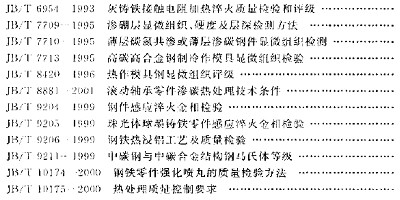 JB/T 6954—1993 灰铸铁接触电阻加热淬火质量检验和评级
JB/T 7709—1995 渗硼层显微组织、硬度及层深检测方法
JB/T 7710—1995 薄层碳氮共渗或薄层渗碳钢件显微组织检测
JB/T 7713—1995 高碳高合金钢制冷作模具显微组织检验
JB/T 8420—1996 热作模具钢显微组织评级
JB/T 8881—2001 滚动轴承零件渗碳热处理技术条件
JB/T 9204—1999 钢件感应淬火金相检验
JB/T 9205—1999 珠光体球墨铸铁零件感应淬火金相检验
JB/T 9206—1999 钢铁热浸铝工艺及质量检验
JB/T 9211—1999 中碳钢与中碳合金结构钢马氏体等级
JB/T 10174—2000 钢铁零件强化喷丸的质量检验方法
JB/T 10175—2000 热处理质量控制要求